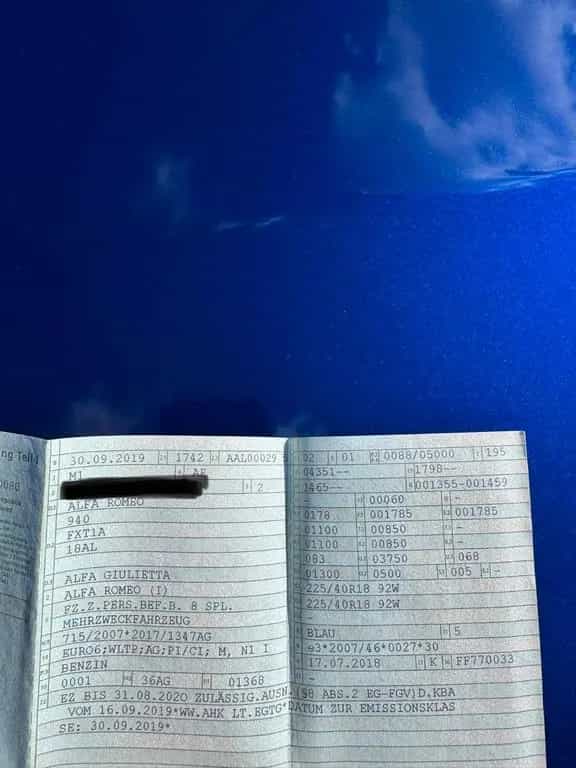 ng Teil I
0080
30.09.2019 1742 AAL00029 5 02 01 0088/05000 195
M1 AF 04351-- 1798--
2 1465-- 001355-001459
ALFA ROMEO 00060 -
940 0178 001785 001785
FXT1A 01100 00850 -
18AL 01100 00850 -
083 03750 068
ALFA GIULIETTA 01300 0500 005 -
ALFA ROMEO (I) 225/40R18 92W
FZ.Z.PERS.BEF.B. 8 SPL. 225/40R18 92W
MEHRZWECKFAHRZEUG -
715/2007*2017/1347AG BLAU 5
EURO6;WLTP;AG;PI/CI; M, N1 I e3*2007/46*0027*30
BENZIN 17.07.2018 K FF770033
0001 36AG 01368 -
EZ BIS 31.08.2020 ZULÄSSIG.AUSN.(§8 ABS.2 EG-FGV)D.KBA
VOM 16.09.2019*WW.AHK LT.EGTG*DATUM ZUR EMISSIONSKLAS
SE: 30.09.2019*